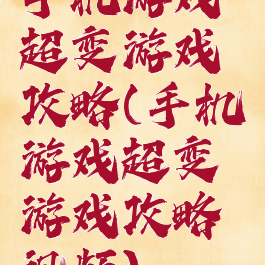 手机游戏
超变游戏
攻略(手机
游戏超变
游戏攻略
视频)